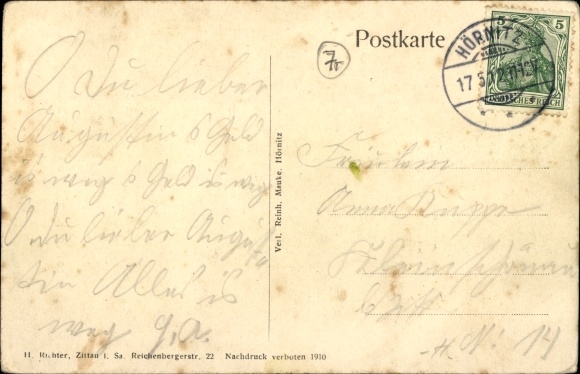 Postkarte
7
5
HÖRNITZ
17.5.12
DEUTSCHES REICH
O Du lieber
Augustin s Geld
is weg s Geld is weg
O du lieber August
tin Alles is
weg
Verl. Reinh. Mauke, Hörnitz
Fräulein
Anna
H. N. 14
H. Richter, Zittau i. Sa. Reichenbergerstr. 22 Nachdruck verboten 1910